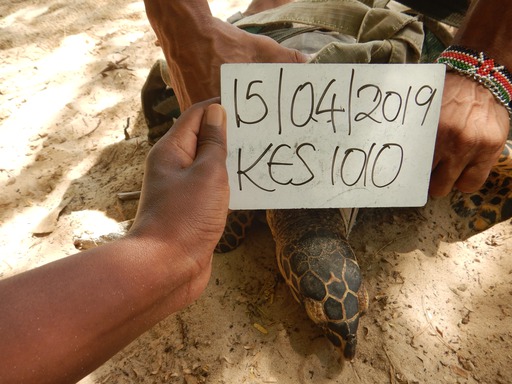 15/04/2019
KES 1010